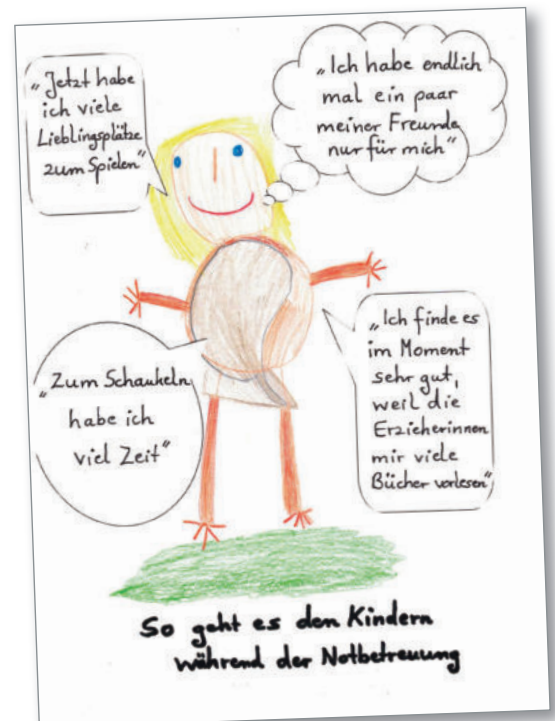 „Jetzt habe
ich viele
Lieblingsplätze
zum Spielen“
„Ich habe endlich
mal ein paar
meiner Freunde
nur für mich“
„Zum Schaukeln
habe ich
viel Zeit“
„Ich finde es
im Moment
sehr gut,
weil die
Erzieherinnen
mir viele
Bücher vorlesen“
So geht es den Kindern
während der Notbetreuung